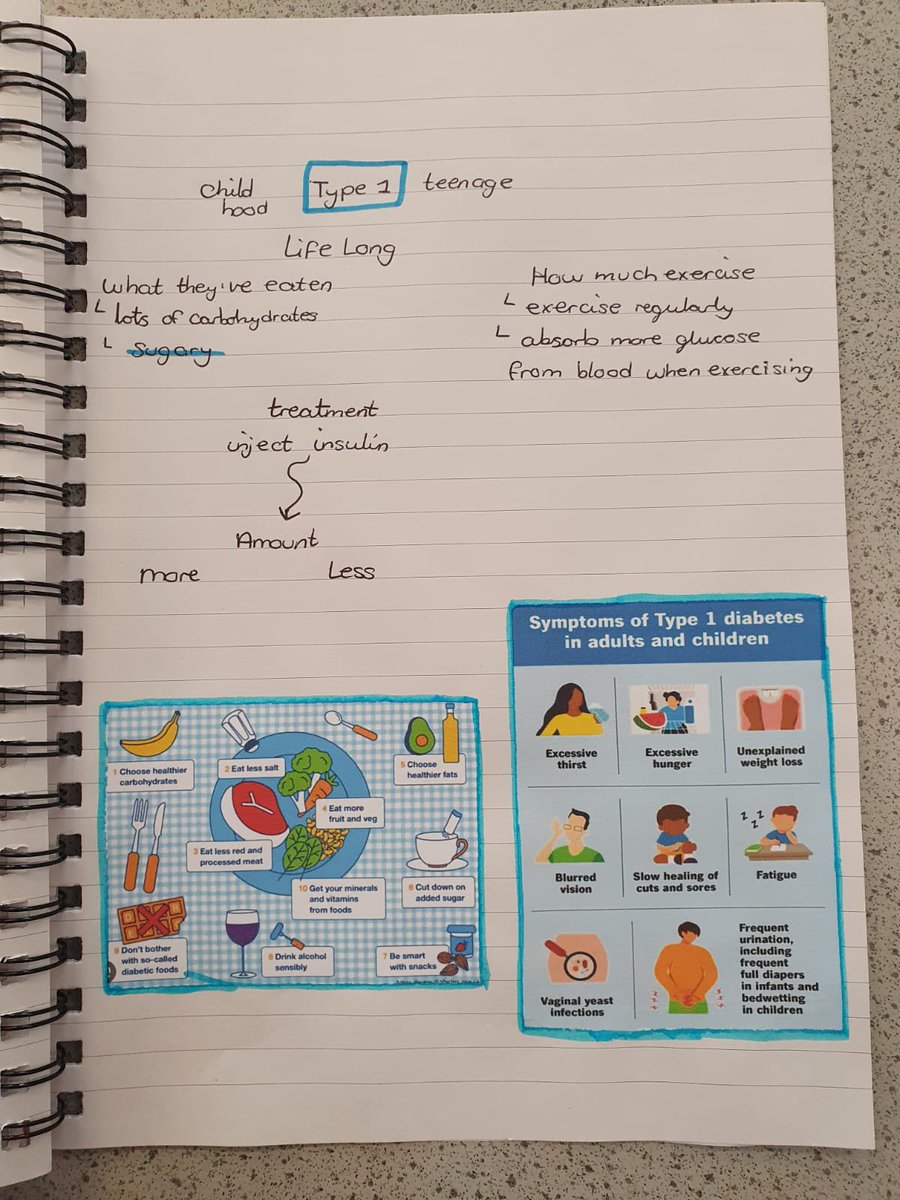 child
hood
Type 1
teenage
Life Long
What they've eaten
lots of carbohydrates
Sugary
How much exercise
exercise regularly
absorb more glucose
from blood when exercising
treatment
inject insulin
Amount
more
Less
1 Choose healthier
carbohydrates
2 Eat less salt
5 Choose
healthier fats
4 Eat more
fruit and veg
3 Eat less red and
processed meat
10 Get your minerals
and vitamins
from foods
6 Cut down on
added sugar
9 Don't bother
with so-called
diabetic foods
8 Drink alcohol
sensibly
7 Be smart
with snacks
Symptoms of Type 1 diabetes
in adults and children
Excessive
thirst
Excessive
hunger
Unexplained
weight loss
Blurred
vision
Slow healing of
cuts and sores
z z z
Fatigue
Vaginal yeast
infections
Frequent
urination,
including
frequent
full diapers
in infants and
bedwetting
in children